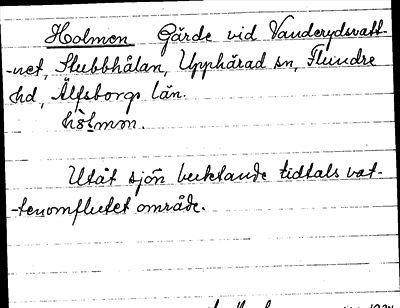 Holmen Gärde vid Vanderydsvatt-
-net, Stubbhålan, Upphärad sn, Flundre
hd, Älfsborgs län.
hòlmən.
Utåt sjön bucktande tidtals vat-
-tenomflutet område.